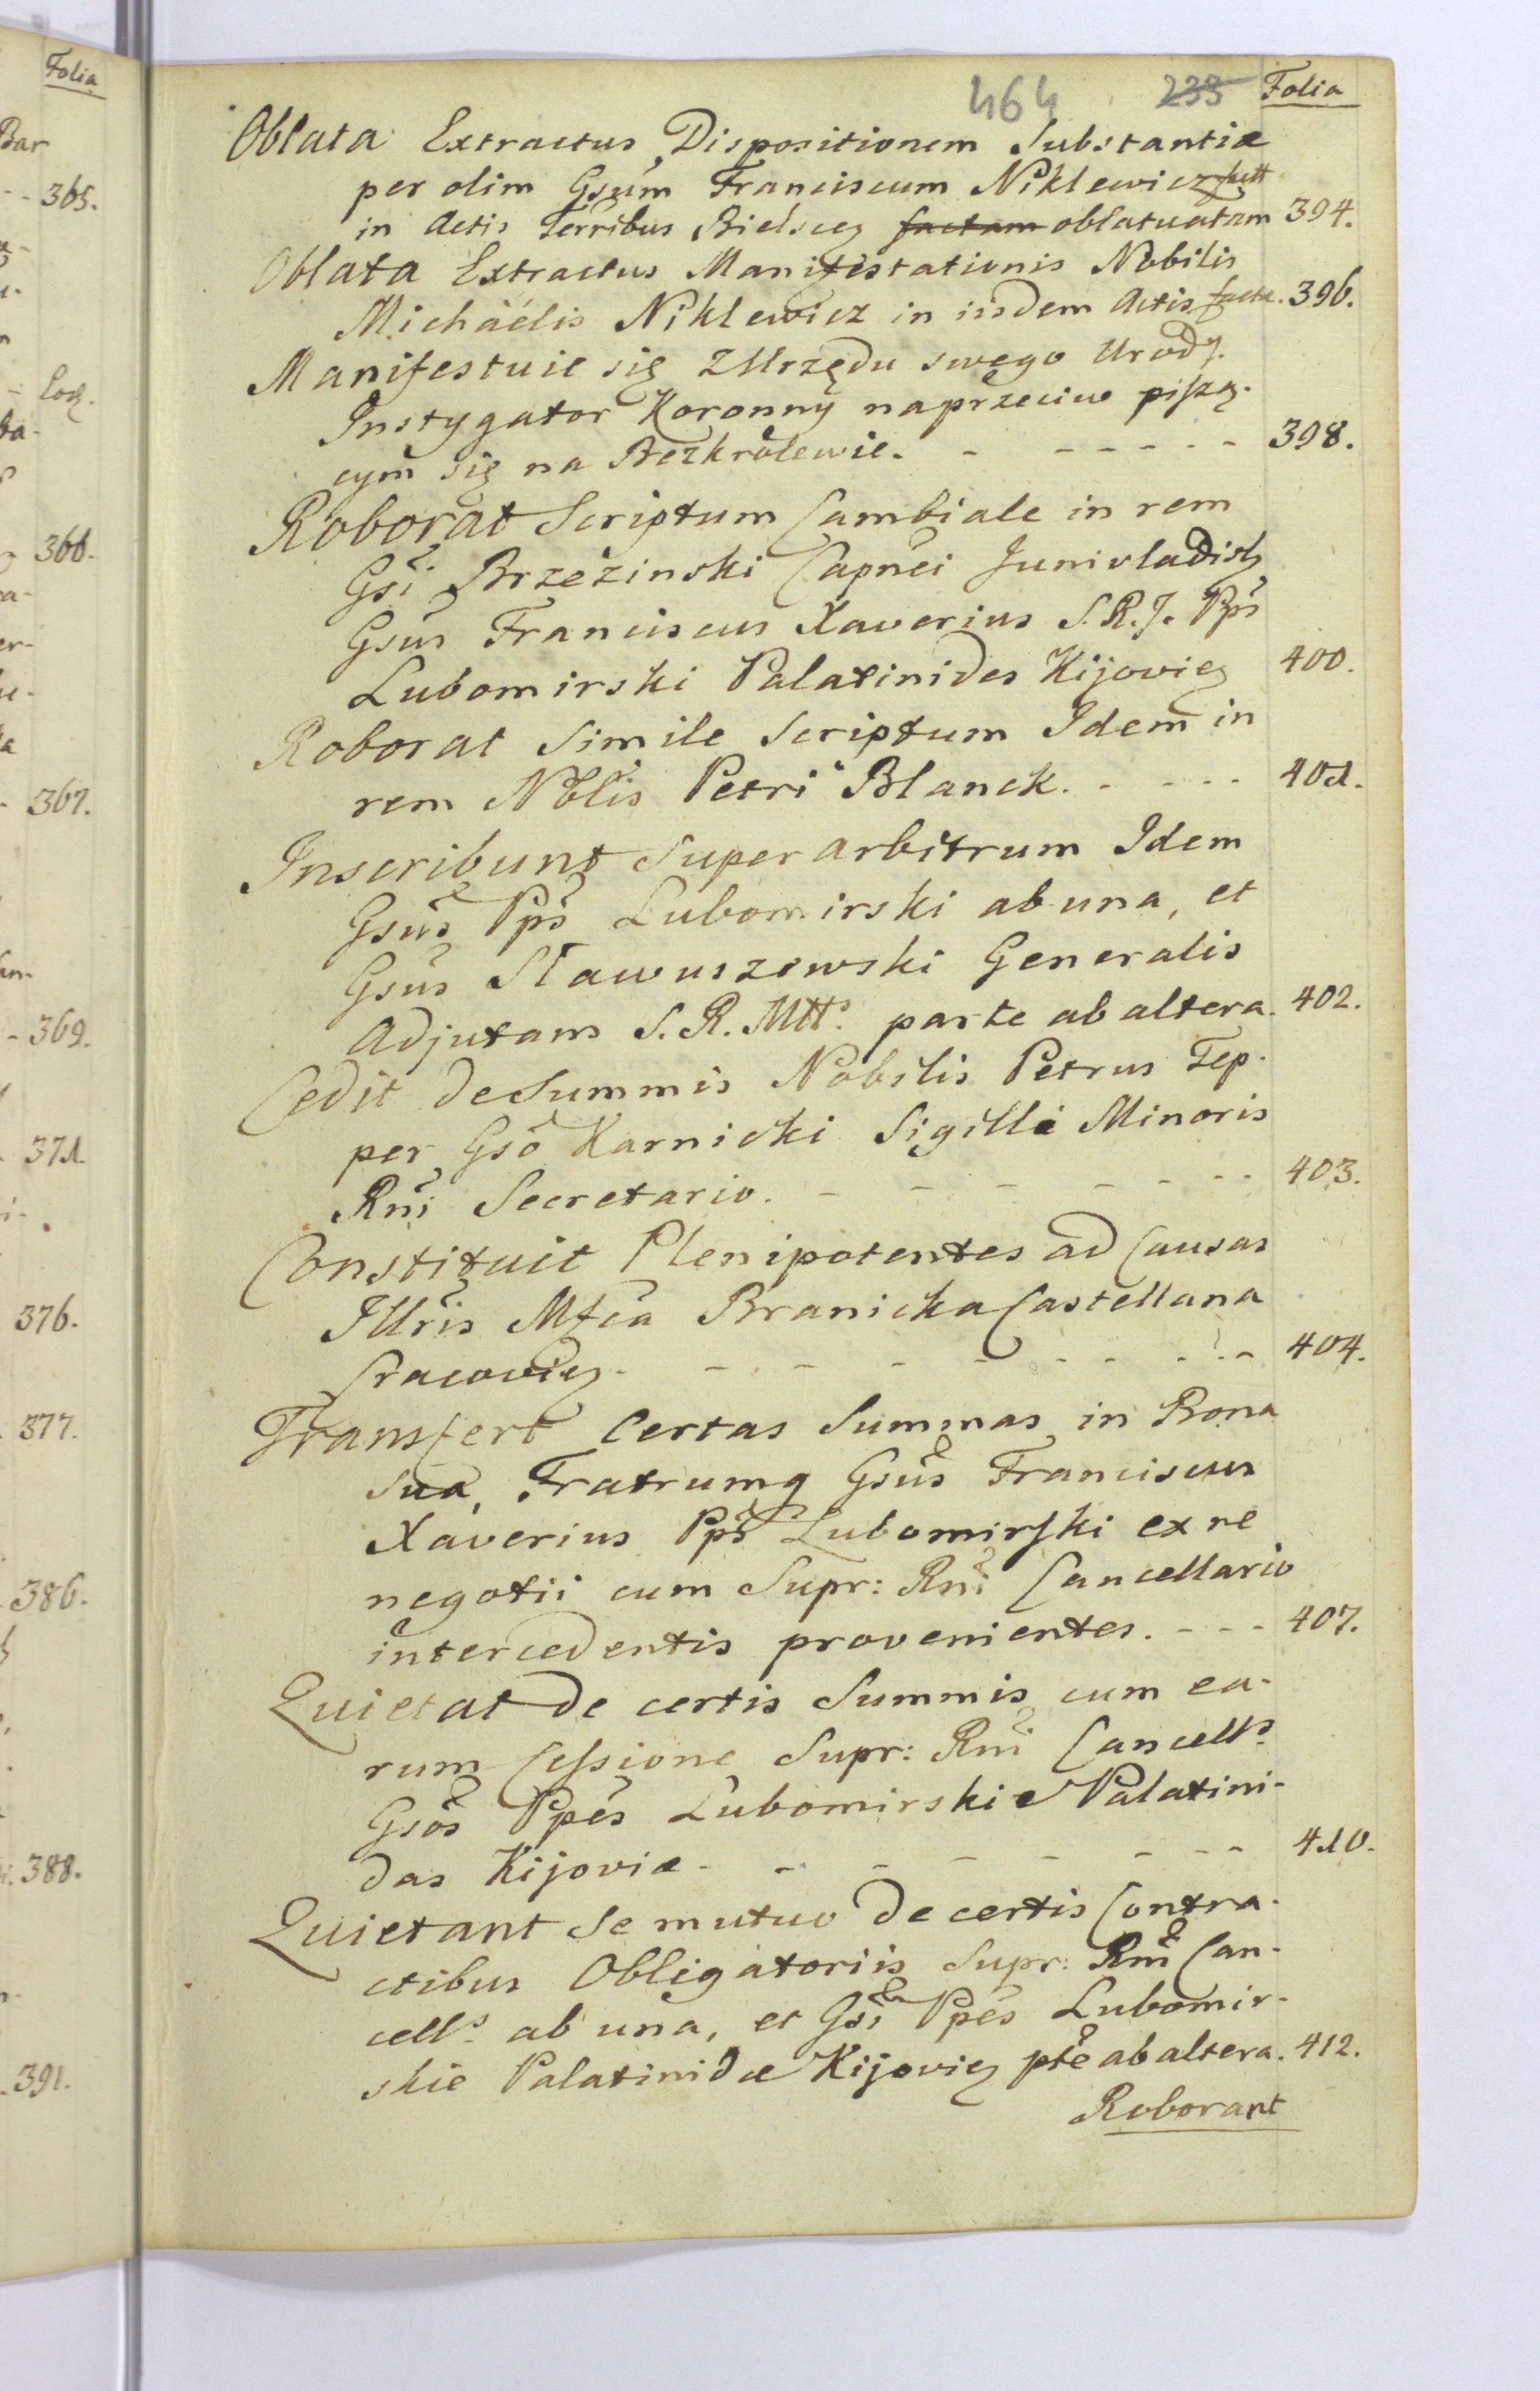 Folia
Bar
365.
Loq.
366.
367.
369.
371.
376.
377.
386.
388.
391.
464 233 Folia
Oblata Extractus Dispositionem Substantiæ
per olim Gsum Franciscum Niklewicz factt
in Actis Terribus Bielscen factam oblatuatam 394.
Oblata Extractus Manifestationis Nobilis
Michaëlis Niklewicz in iisdem Actis factæ. 396.
Manifestuie się z Urzędu swego Urodz.
Instygator Koronny naprzeciw piszą-
cym się na Bezkrólewie. - - - - - - 398.
Roborat Scriptum Cambiale in rem
Gsi Brzezinski Capnei Junivladisl
Gsus Franciscus Xaverius S.R.J. Pps
Lubomirski Palatinides Kijovien 400.
Roborat Simile Scriptum Idem in
rem Nolis Petri Blanck. - - - - 401.
Inscribunt Super arbitrum Idem
Gsus Pps Lubomirski ab una, et
Gsus Stawuszewski Generalis
Adjutans S.R.Mtt: parte ab altera. 402.
Cedit de Summis Nobilis Petrus Tep-
per Gso Karnicki Sigilli Minoris
Rni Secretario. - - - - - - - 403.
Constituit Plenipotentes ad Causas
Illris Mfca Branicka Castellana
Cracovien - - - - - - - - - 404.
Transfert Certas Summas in Bona
Sua, Fratrumq Gsus Franciscus
Xaverius Pps Lubomirski ex re
negotii cum Supr: Rni Cancellario
intercedentis provenientes. - - - 407.
Quietat de certis Summis cum ea-
rum Cessione Supr: Rni Cancells
Gsos Ppes Lubomirskie Palatini-
das Kijoviæ - - - - - - - - 410.
Quietant Se mutuo de certis Contra-
ctibus Obligatoriis Supr: Rni Can-
cells ab una, et Gsi Ppes Lubomir-
skie Palatinidæ Kijovien pte ab altera. 412.
Roborant